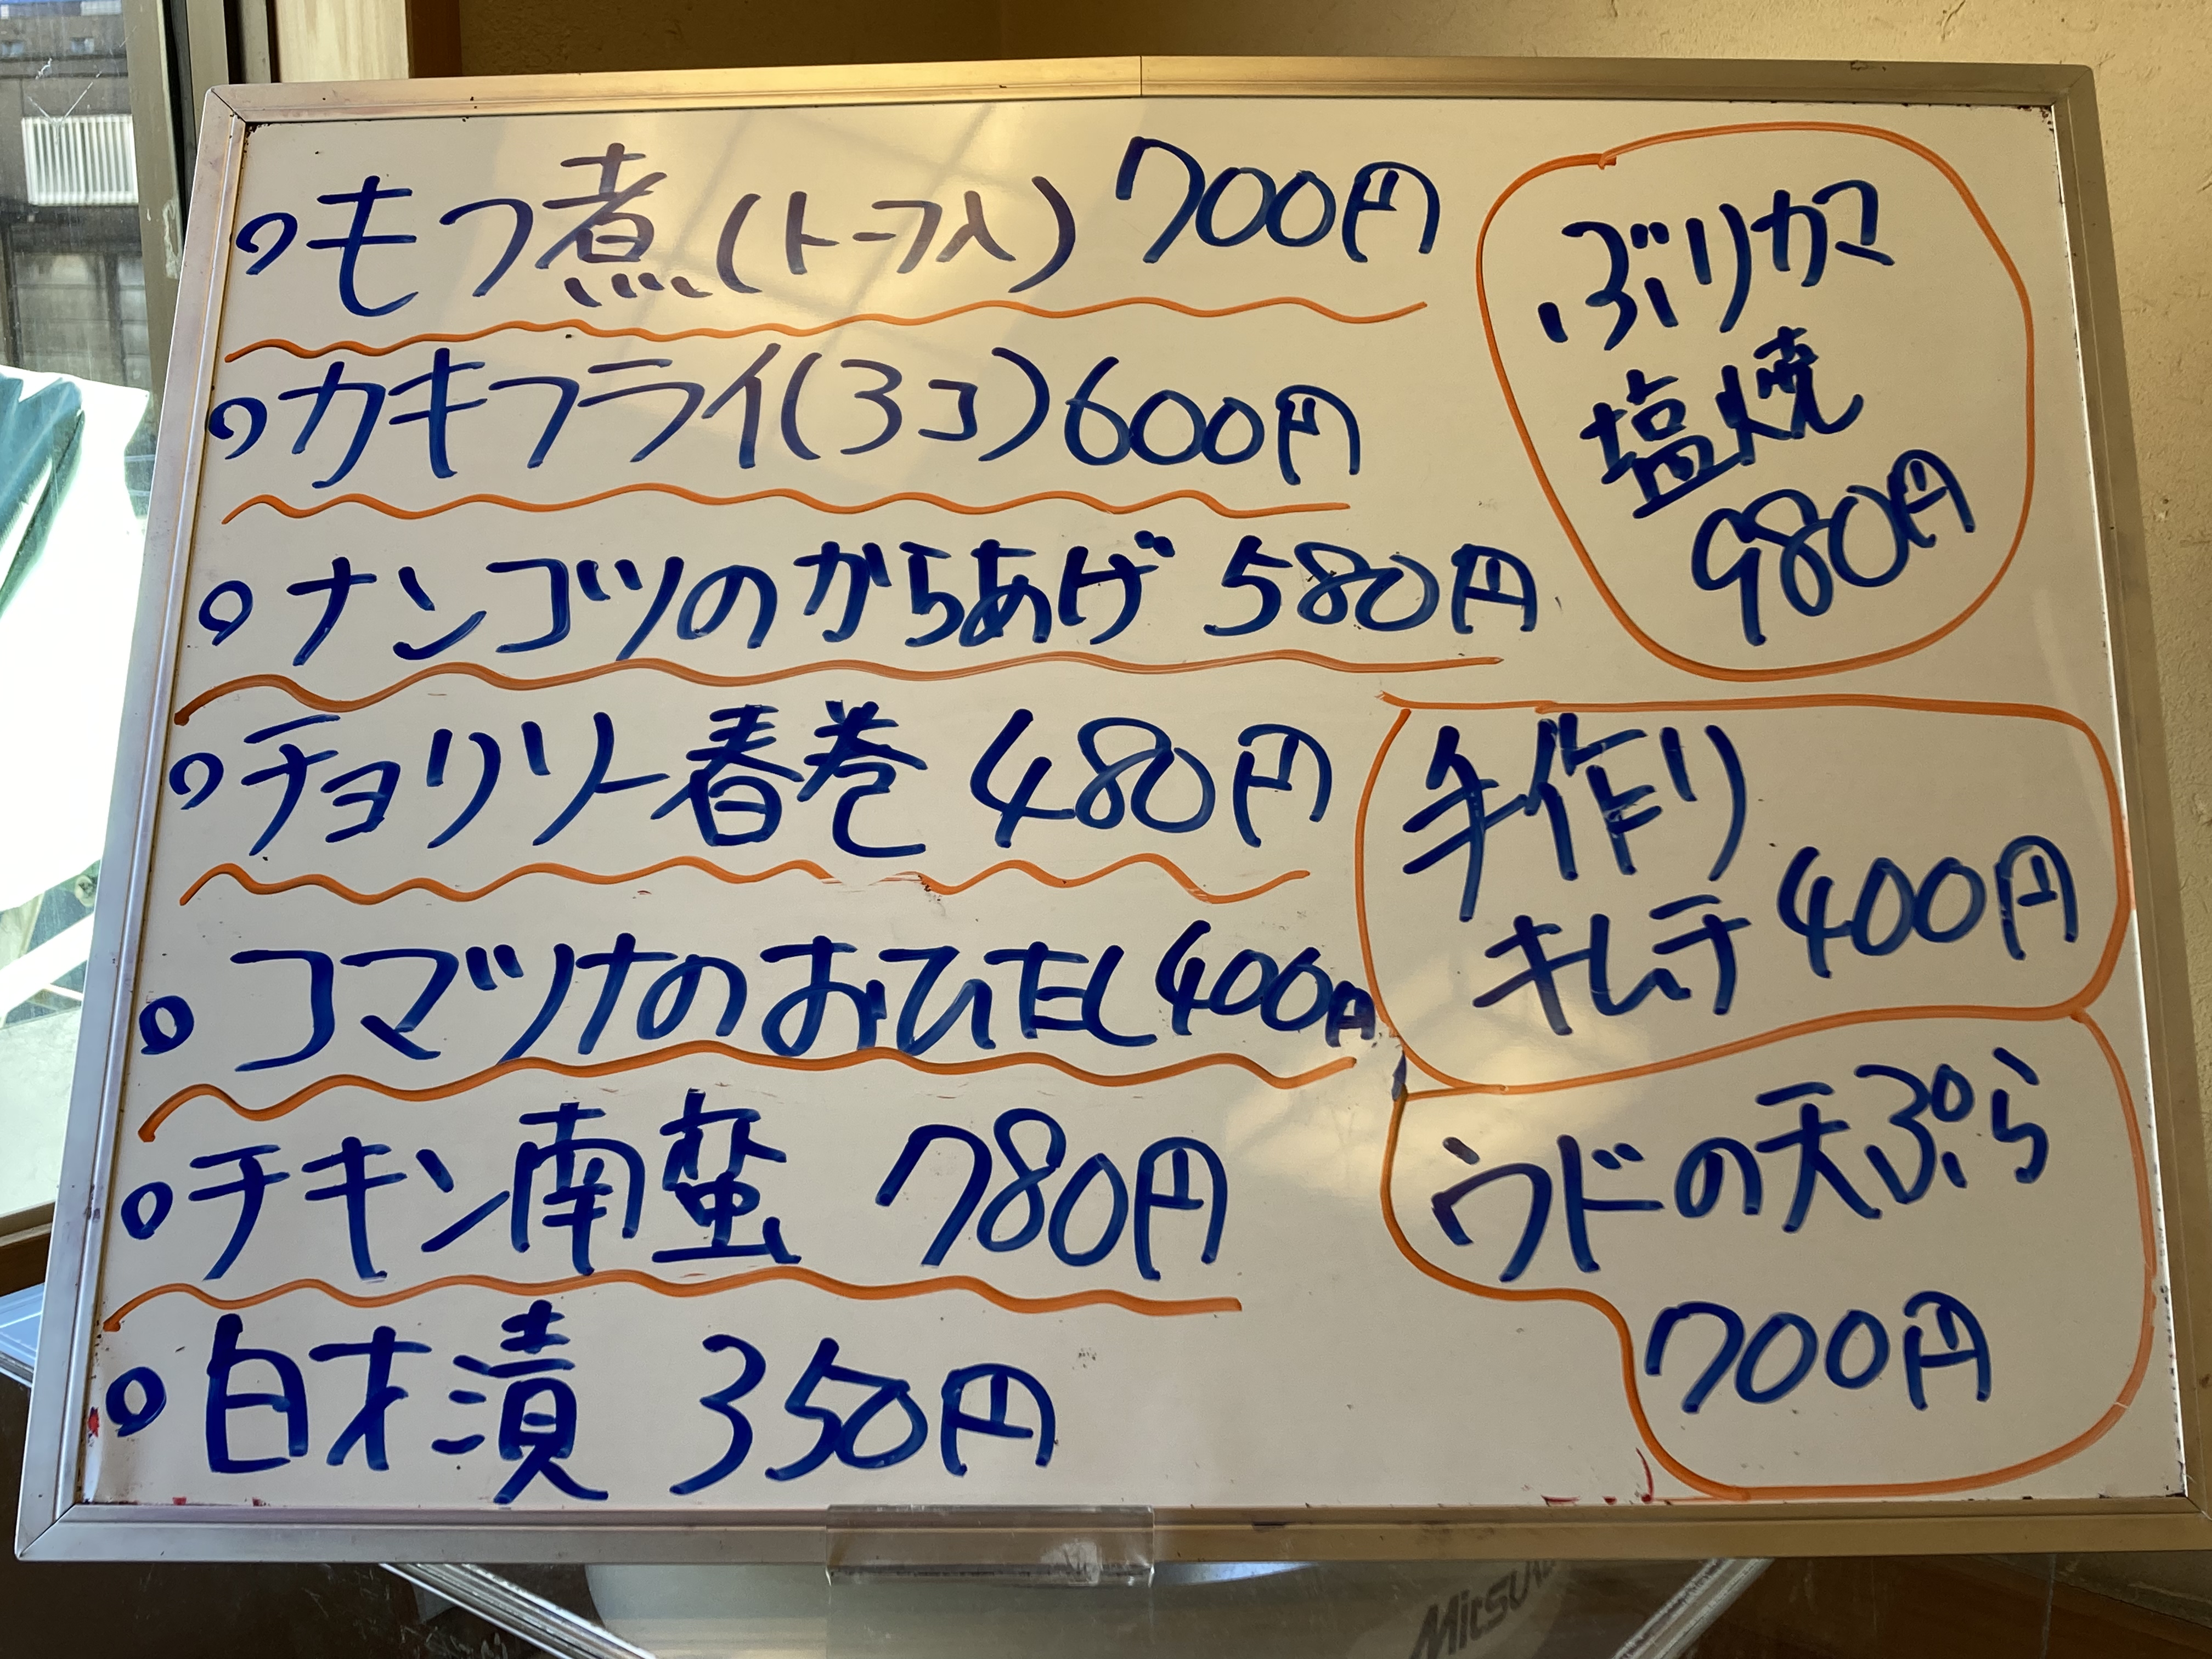 もつ煮(トーフ入) 700円
カキフライ(3コ)600円
ナンコツのからあげ 580円
チョリソー春巻 480円
コマツナのおひたし400円
チキン南蛮 780円
白才漬 350円
ぶりカマ
塩焼
980円
手作り
キムチ 400円
ウドの天ぷら
700円